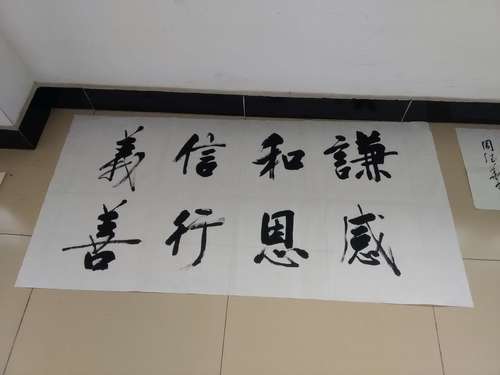 謙和信義
感恩行善